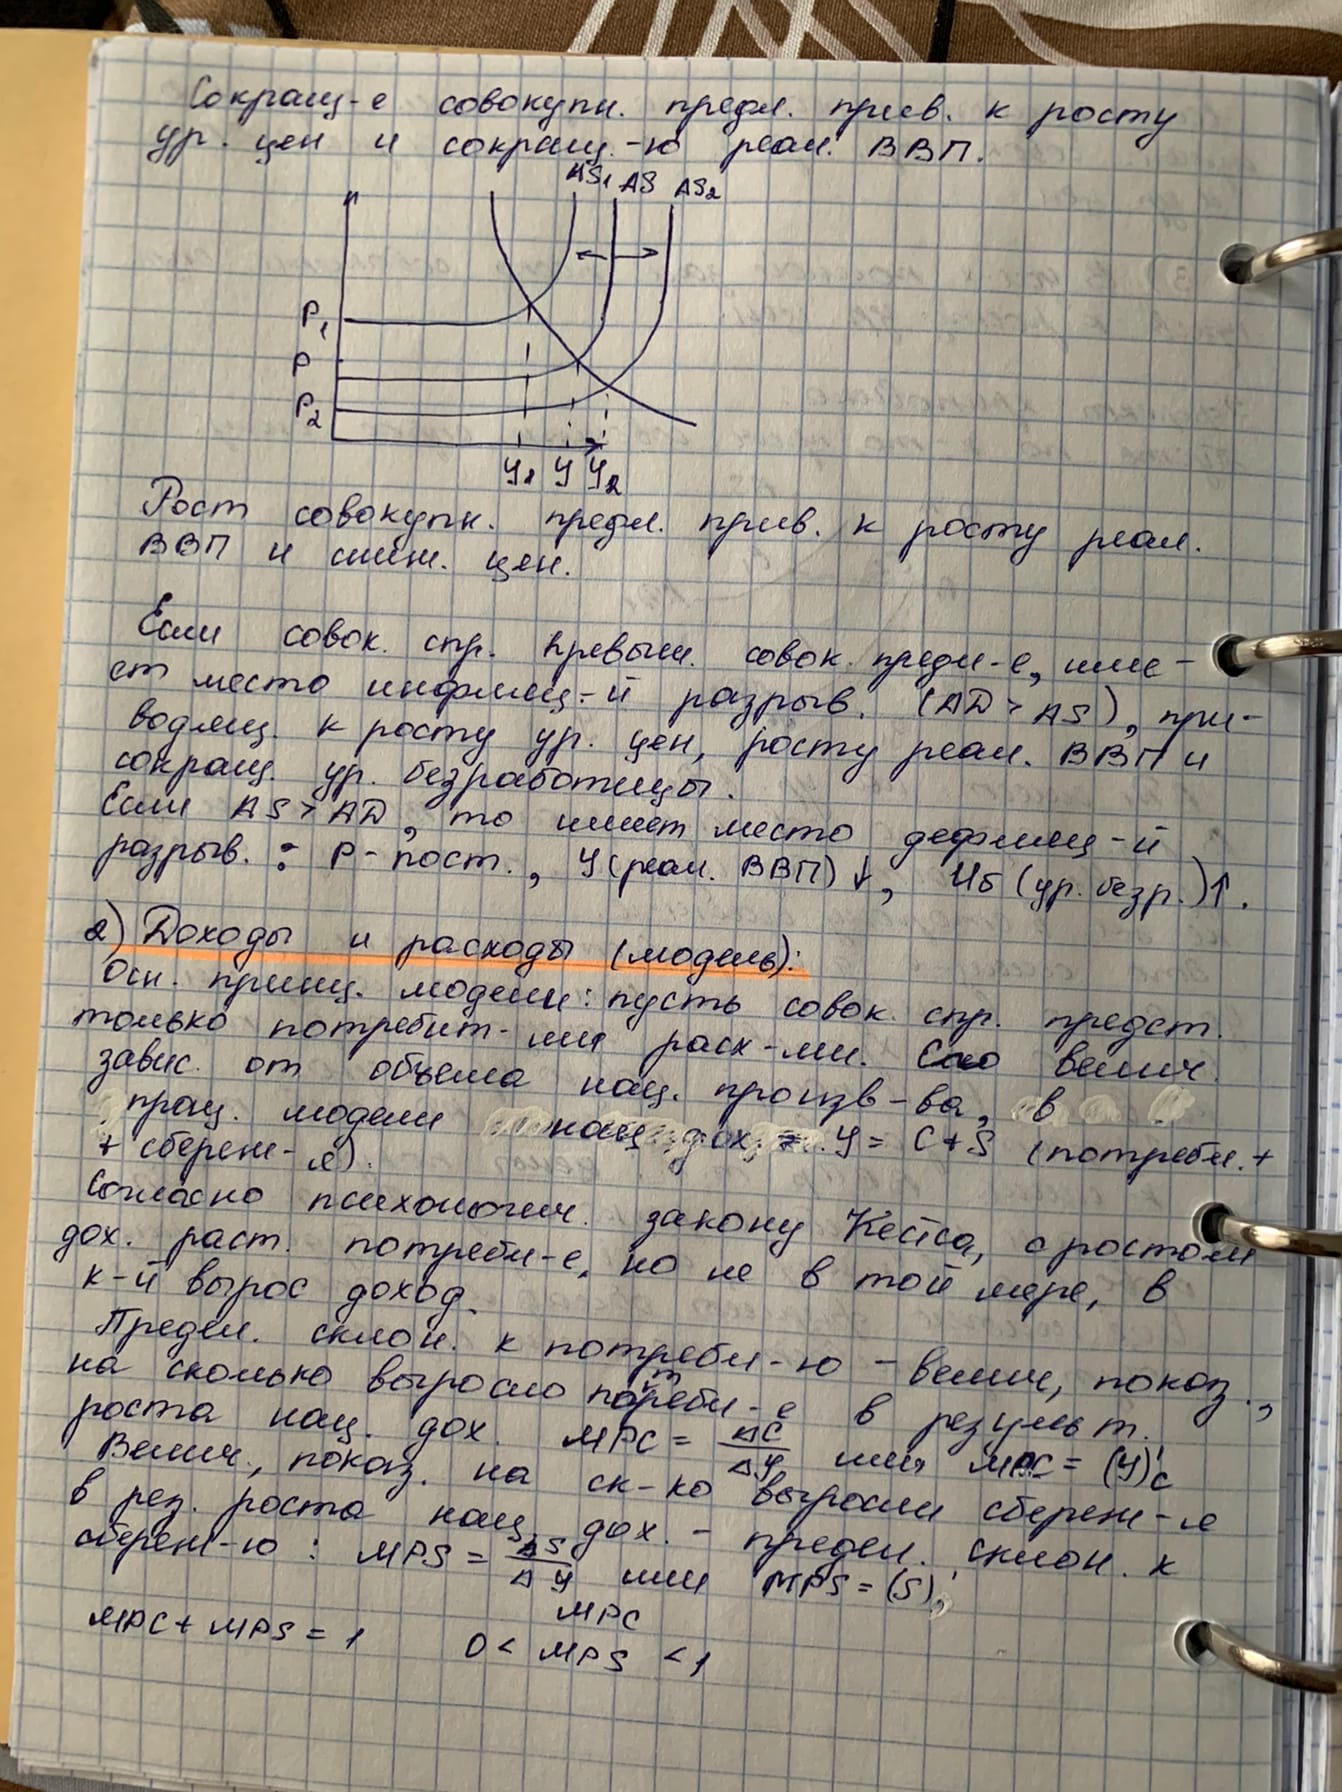 Сокращ-е совокупн. предл. прив. к росту
ур. цен и сокращ.-ю реал. ВВП.
AS₁ AS AS₂
P₁
P
P₂
У₁ У У₂
Рост совокупн. предл. прив. к росту реал.
ВВП и сниж. цен.
Если совок. спр. превыш. совок. предл-е, име-
ет место инфляц-й разрыв. (AD > AS), при-
водящ. к росту ур. цен, росту реал. ВВП и
сокращ. ур. безработицы.
Если AS > AD, то имеет место дефляц-й
разрыв. : P - пост., У (реал. ВВП) ↓, Uб (ур. безр.) ↑.
2) Доходы и расходы (модель):
Осн. принц. модели: пусть совок. спр. предст.
только потребит-ми расх-ми. Его велич.
завис. от объема нац. произв-ва, в
прац. модели нац. дох. = У = C + S (потребл. +
+ сбереж-я).
Согласно психологич. закону Кейса, с ростом
дох. раст. потребл-е, но не в той мере, в
к-й вырос доход.
Предел. склон. к потребл-ю - велич., показ.,
на сколько выросло потребл-е в результ.
роста нац. дох. MPC = ΔC/ΔУ или MPC = (У)'c
Велич., показ. на ск-ко выросли сбереж-я
в рез. роста нац. дох. - предел. склон. к
сбереж-ю : MPS = ΔS/ΔУ или MPS = (S)'
MPC + MPS = 1
MPC
0 < MPS < 1